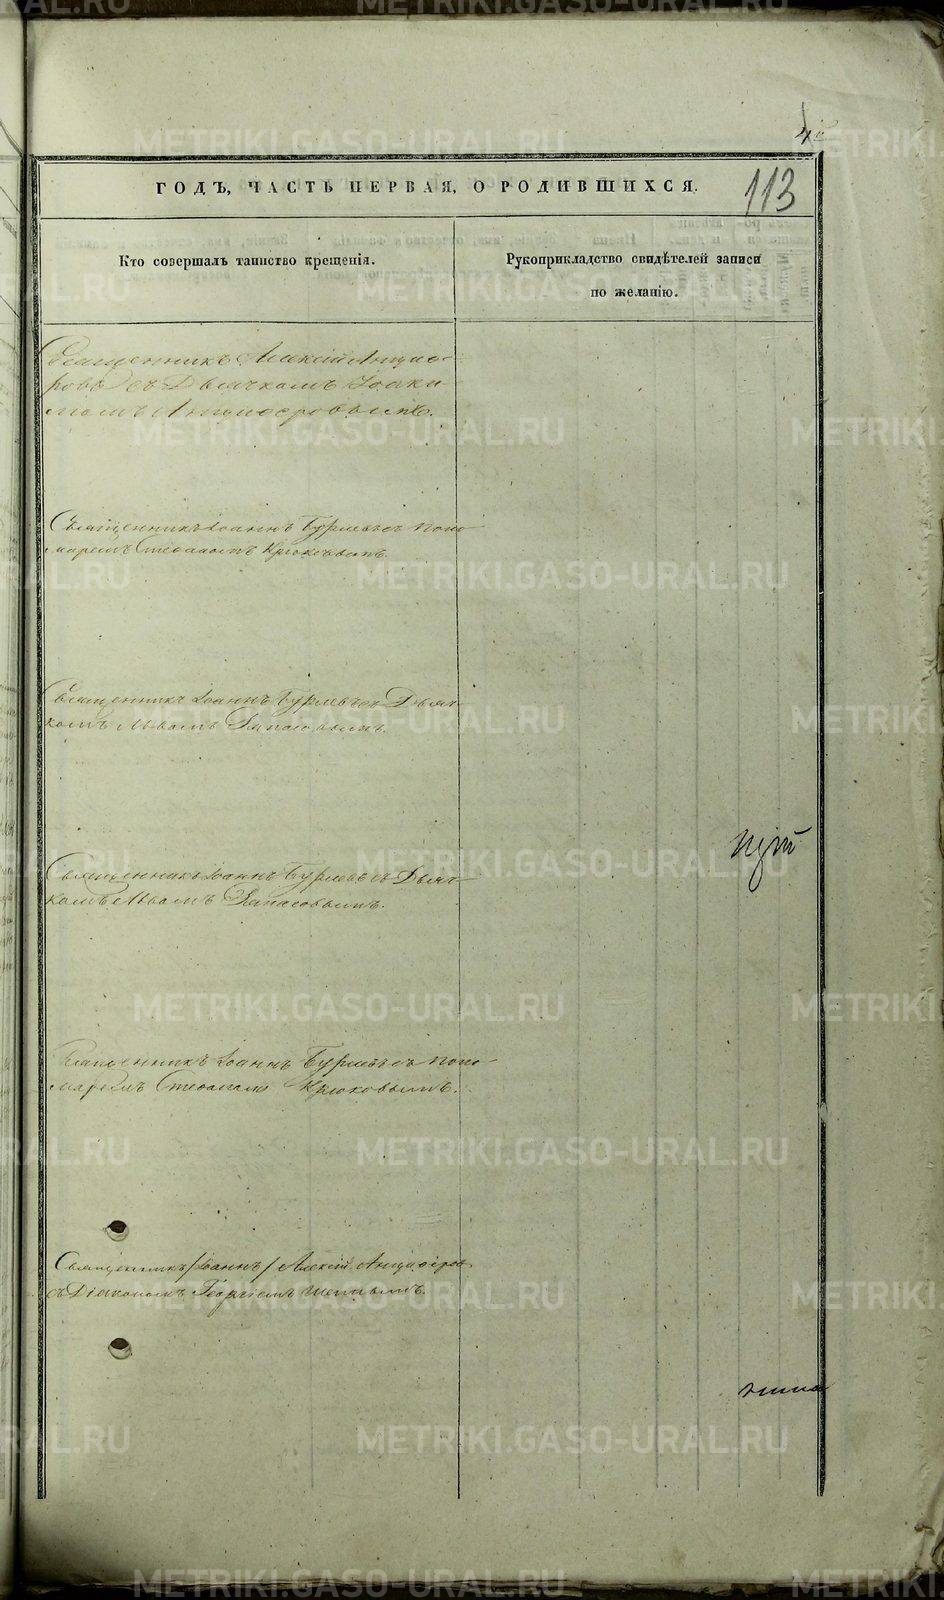 113
ГОДЪ, ЧАСТЬ ПЕРВАЯ, О РОДИВШИХСЯ.
Кто совершалъ таинство крещенія.
Рукоприкладство свидѣтелей записи
по желанію.
Священникъ Алексій Анцыѳе-
ровъ съ Дьячкомъ Іоаки-
момъ Анцыѳеровымъ.
Священникъ Іоаннъ Бурлевъ съ поно-
маремъ Стефаномъ Крюковымъ.
Священникъ Іоаннъ Бурлевъ съ Дьяч-
комъ Львомъ Запасовымъ.
Священникъ Іоаннъ Бурлевъ съ Дьяч-
комъ Львомъ Запасовымъ.
Священникъ Іоаннъ Бурлевъ съ поно-
маремъ Стефаномъ Крюковымъ.
Священникъ /Іоаннъ/ Алексій Анцыѳеровъ
съ Діакономъ Георгіемъ
METRIKI.GASO-URAL.RU